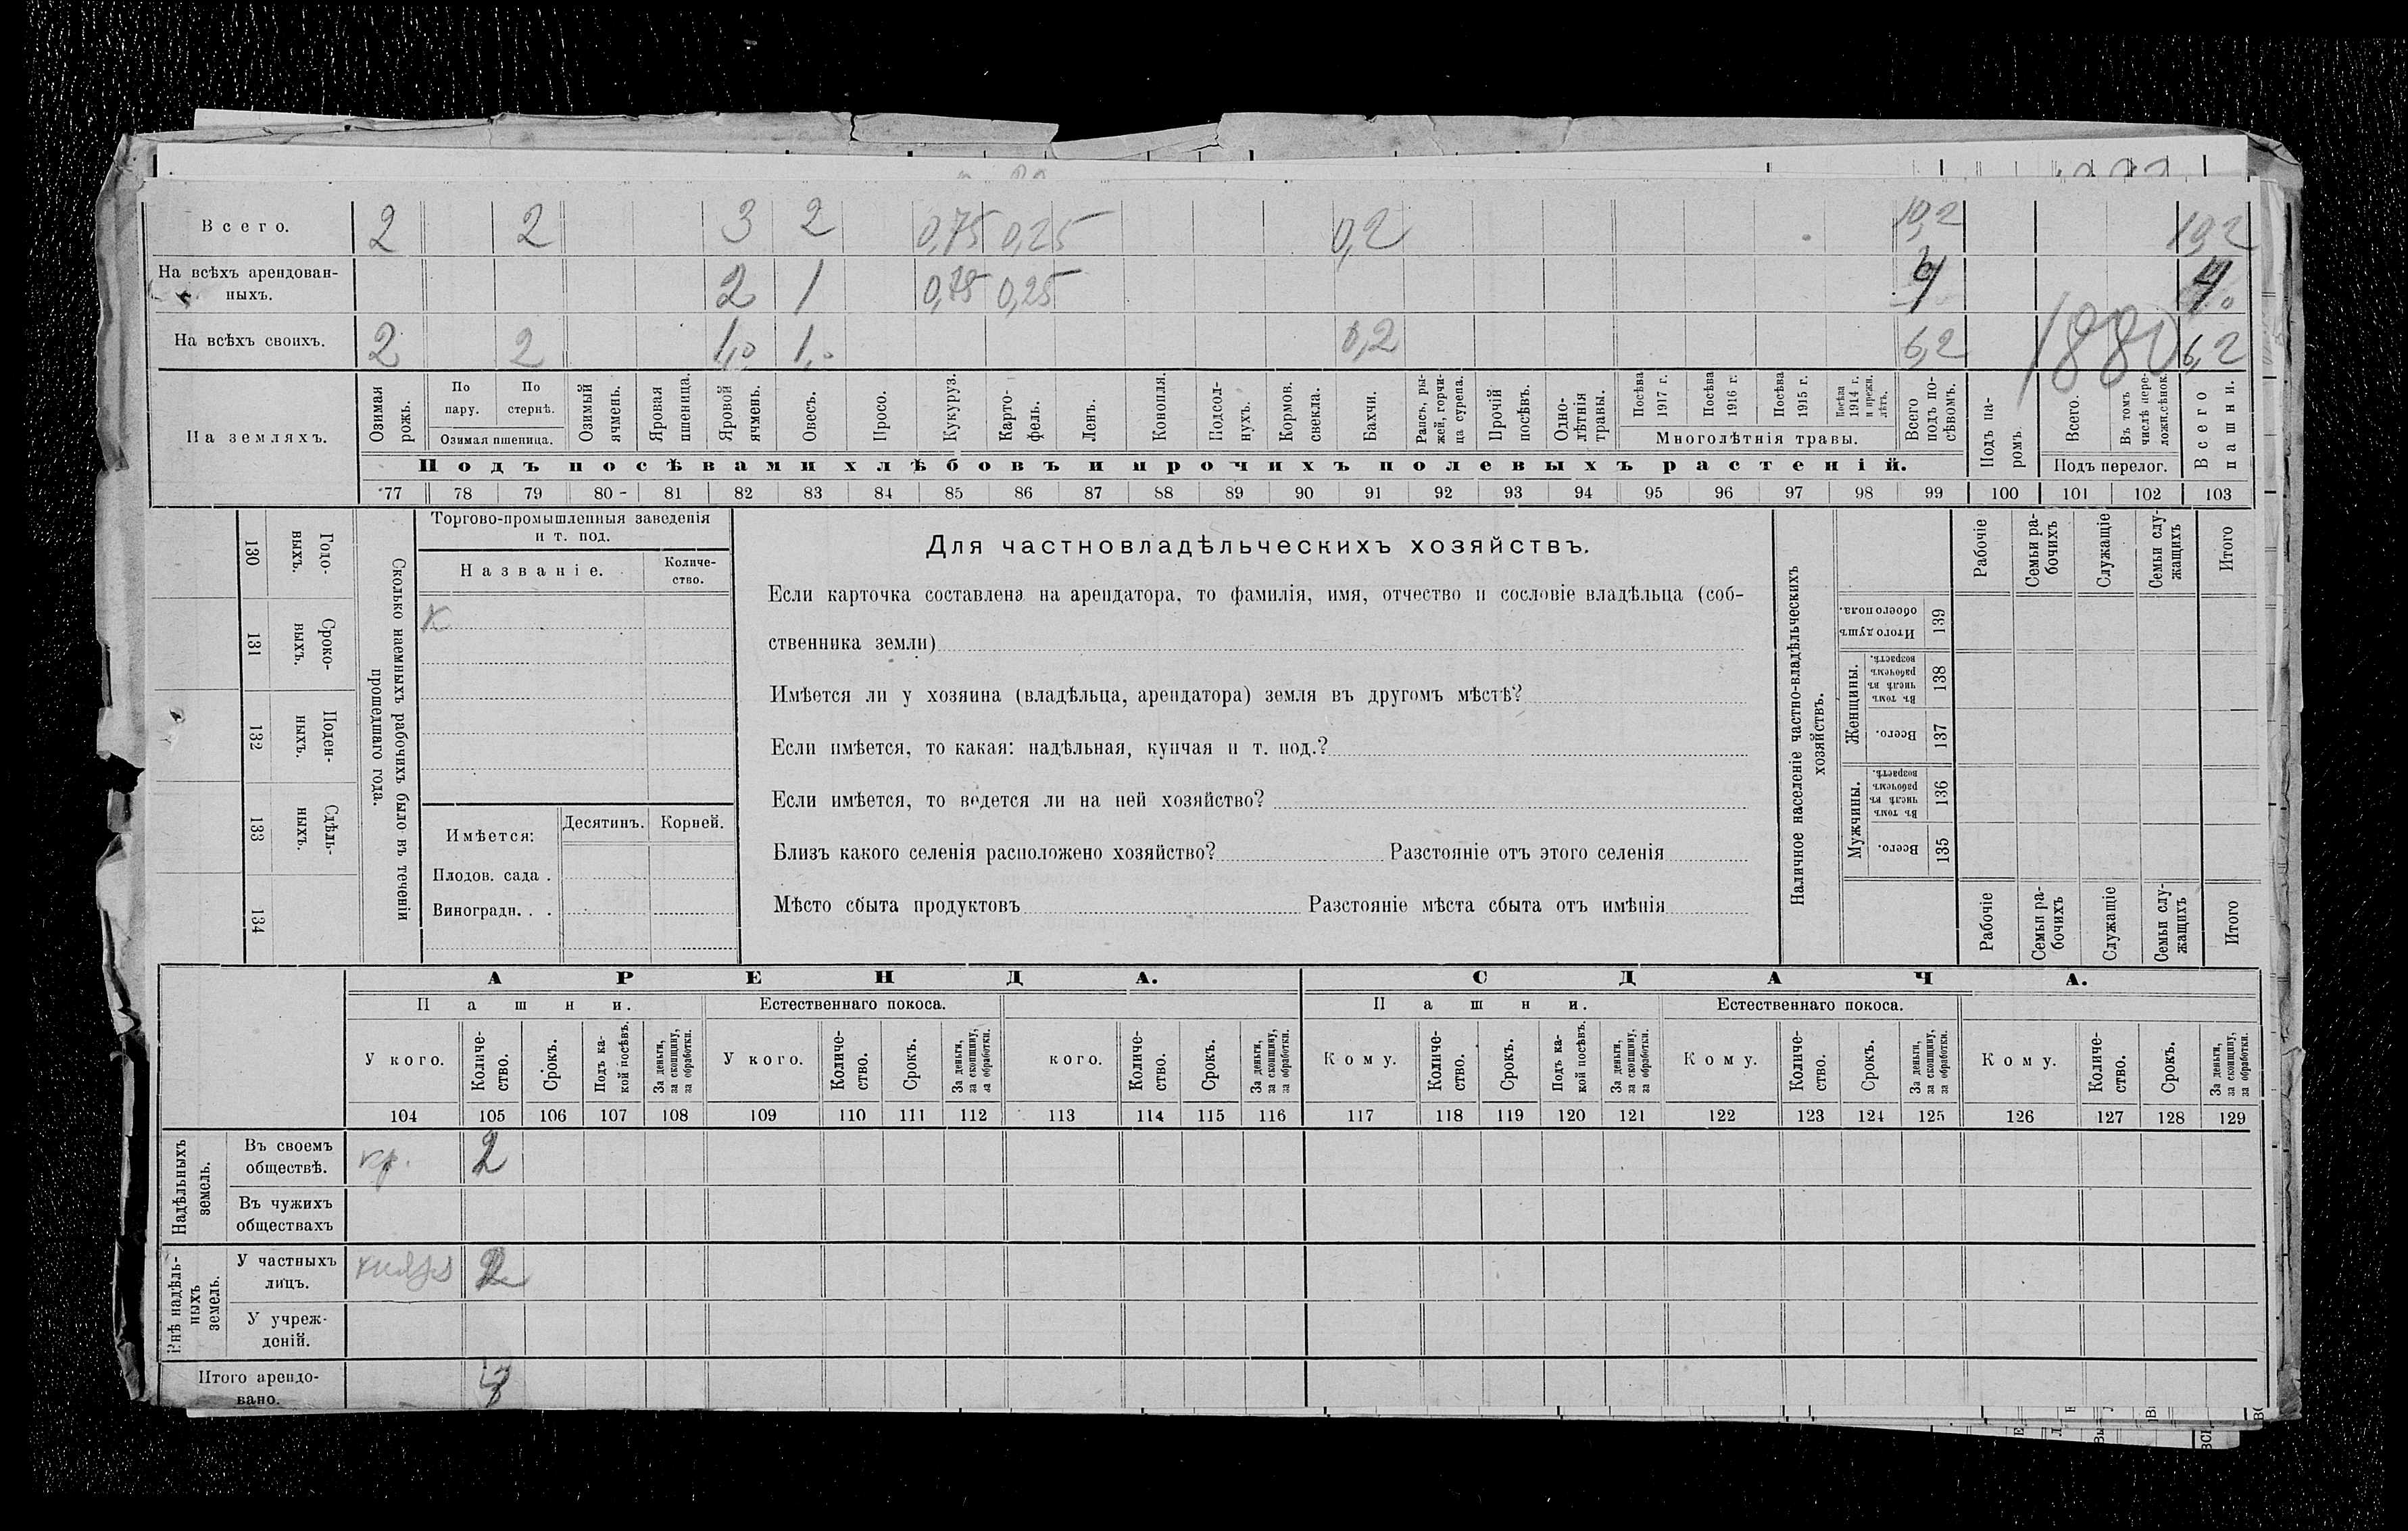 Всего. 2 2 3 2 0,75 0,25 0,2 10,2 10,2
На всѣхъ арендован-
ныхъ. 2 1 0,75 0,25 4 4,0
На всѣхъ своихъ. 2 2 1,0 1,0 0,2 6,2 6,2
1880
На земляхъ.
Озимая рожь.
По пару.
По стернѣ.
Озимая пшеница.
Озимый ячмень.
Яровая пшеница.
Яровой ячмень.
Овесъ.
Просо.
Кукуруз.
Карто-
фель.
Ленъ.
Конопля.
Подсол-
нухъ.
Кормов. свекла.
Бахчи.
Рапсъ, ры-
жей, горчи-
ца сурепа.
Прочій посѣвъ.
Одно-
лѣтнія травы.
Посѣва 1917 г.
Посѣва 1916 г.
Посѣва 1915 г.
Посѣва 1914 г. и прежн. лѣтъ.
Многолѣтнія травы.
Всего подъ по-
сѣвомъ.
Подъ па-
ромъ.
Всего.
Въ томъ числѣ пере-
ложн.сѣнок.
Подъ перелог.
Всего пашни.
Подъ посѣвами хлѣбовъ и прочихъ полевыхъ растеній.
77 78 79 80 81 82 83 84 85 86 87 88 89 90 91 92 93 94 95 96 97 98 99 100 101 102 103
130 Годо-
выхъ.
131 Сроко-
выхъ.
132 Поден-
ныхъ.
133 Сдѣль-
ныхъ.
134
Сколько наемныхъ рабочихъ было въ теченіи
прошедшаго года.
Торгово-промышленныя заведенія
и т. под.
Названіе.
Количе-
ство.
Имѣется:
Десятинъ. Корней.
Плодов. сада .
Виноградн. . .
Для частновладѣльческихъ хозяйствъ.
Если карточка составлена на арендатора, то фамилія, имя, отчество и сословіе владѣльца (соб-
ственника земли)
Имѣется ли у хозяина (владѣльца, арендатора) земля въ другомъ мѣстѣ?
Если имѣется, то какая: надѣльная, купчая и т. под.?
Если имѣется, то ведется ли на ней хозяйство?
Близъ какого селенія расположено хозяйство? Разстояніе отъ этого селенія
Мѣсто сбыта продуктовъ Разстояніе мѣста сбыта отъ имѣнія
Наличное населеніе частно-владѣльческихъ
хозяйствъ.
Рабочіе
Семьи ра-
бочихъ
Служащіе
Семьи слу-
жащихъ
Итого
Итого душъ
обоего пола. 139
Женщины.
Въ томъ числѣ въ рабочемъ возрастѣ. 138
Всего. 137
Мужчины.
Въ томъ числѣ въ рабочемъ возрастѣ. 136
Всего. 135
Рабочіе
Семьи ра-
бочихъ
Служащіе
Семьи слу-
жащихъ
Итого
АРЕНДА. СДАЧА.
Пашни. Естественнаго покоса. Пашни. Естественнаго покоса.
У кого.
Количе-
ство.
Срокъ.
Подъ ка-
кой посѣвъ.
За деньги,
за скопщину,
за обработки.
У кого.
Количе-
ство.
Срокъ.
За деньги,
за скопщину,
за обработки.
кого.
Количе-
ство.
Срокъ.
За деньги,
за скопщину,
за обработки.
Кому.
Количе-
ство.
Срокъ.
Подъ ка-
кой посѣвъ.
За деньги,
за скопщину,
за обработки.
Кому.
Количе-
ство.
Срокъ.
За деньги,
за скопщину,
за обработки.
Кому.
Количе-
ство.
Срокъ.
За деньги,
за скопщину,
за обработки.
104 105 106 107 108 109 110 111 112 113 114 115 116 117 118 119 120 121 122 123 124 125 126 127 128 129
Надѣльныхъ
земель.
Въ своемъ
обществѣ. кр. 2
Въ чужихъ
обществахъ
Внѣ надѣль-
ныхъ
земель.
У частныхъ
лицъ. 2
У учреж-
деній.
Итого арендо-
вано. 4